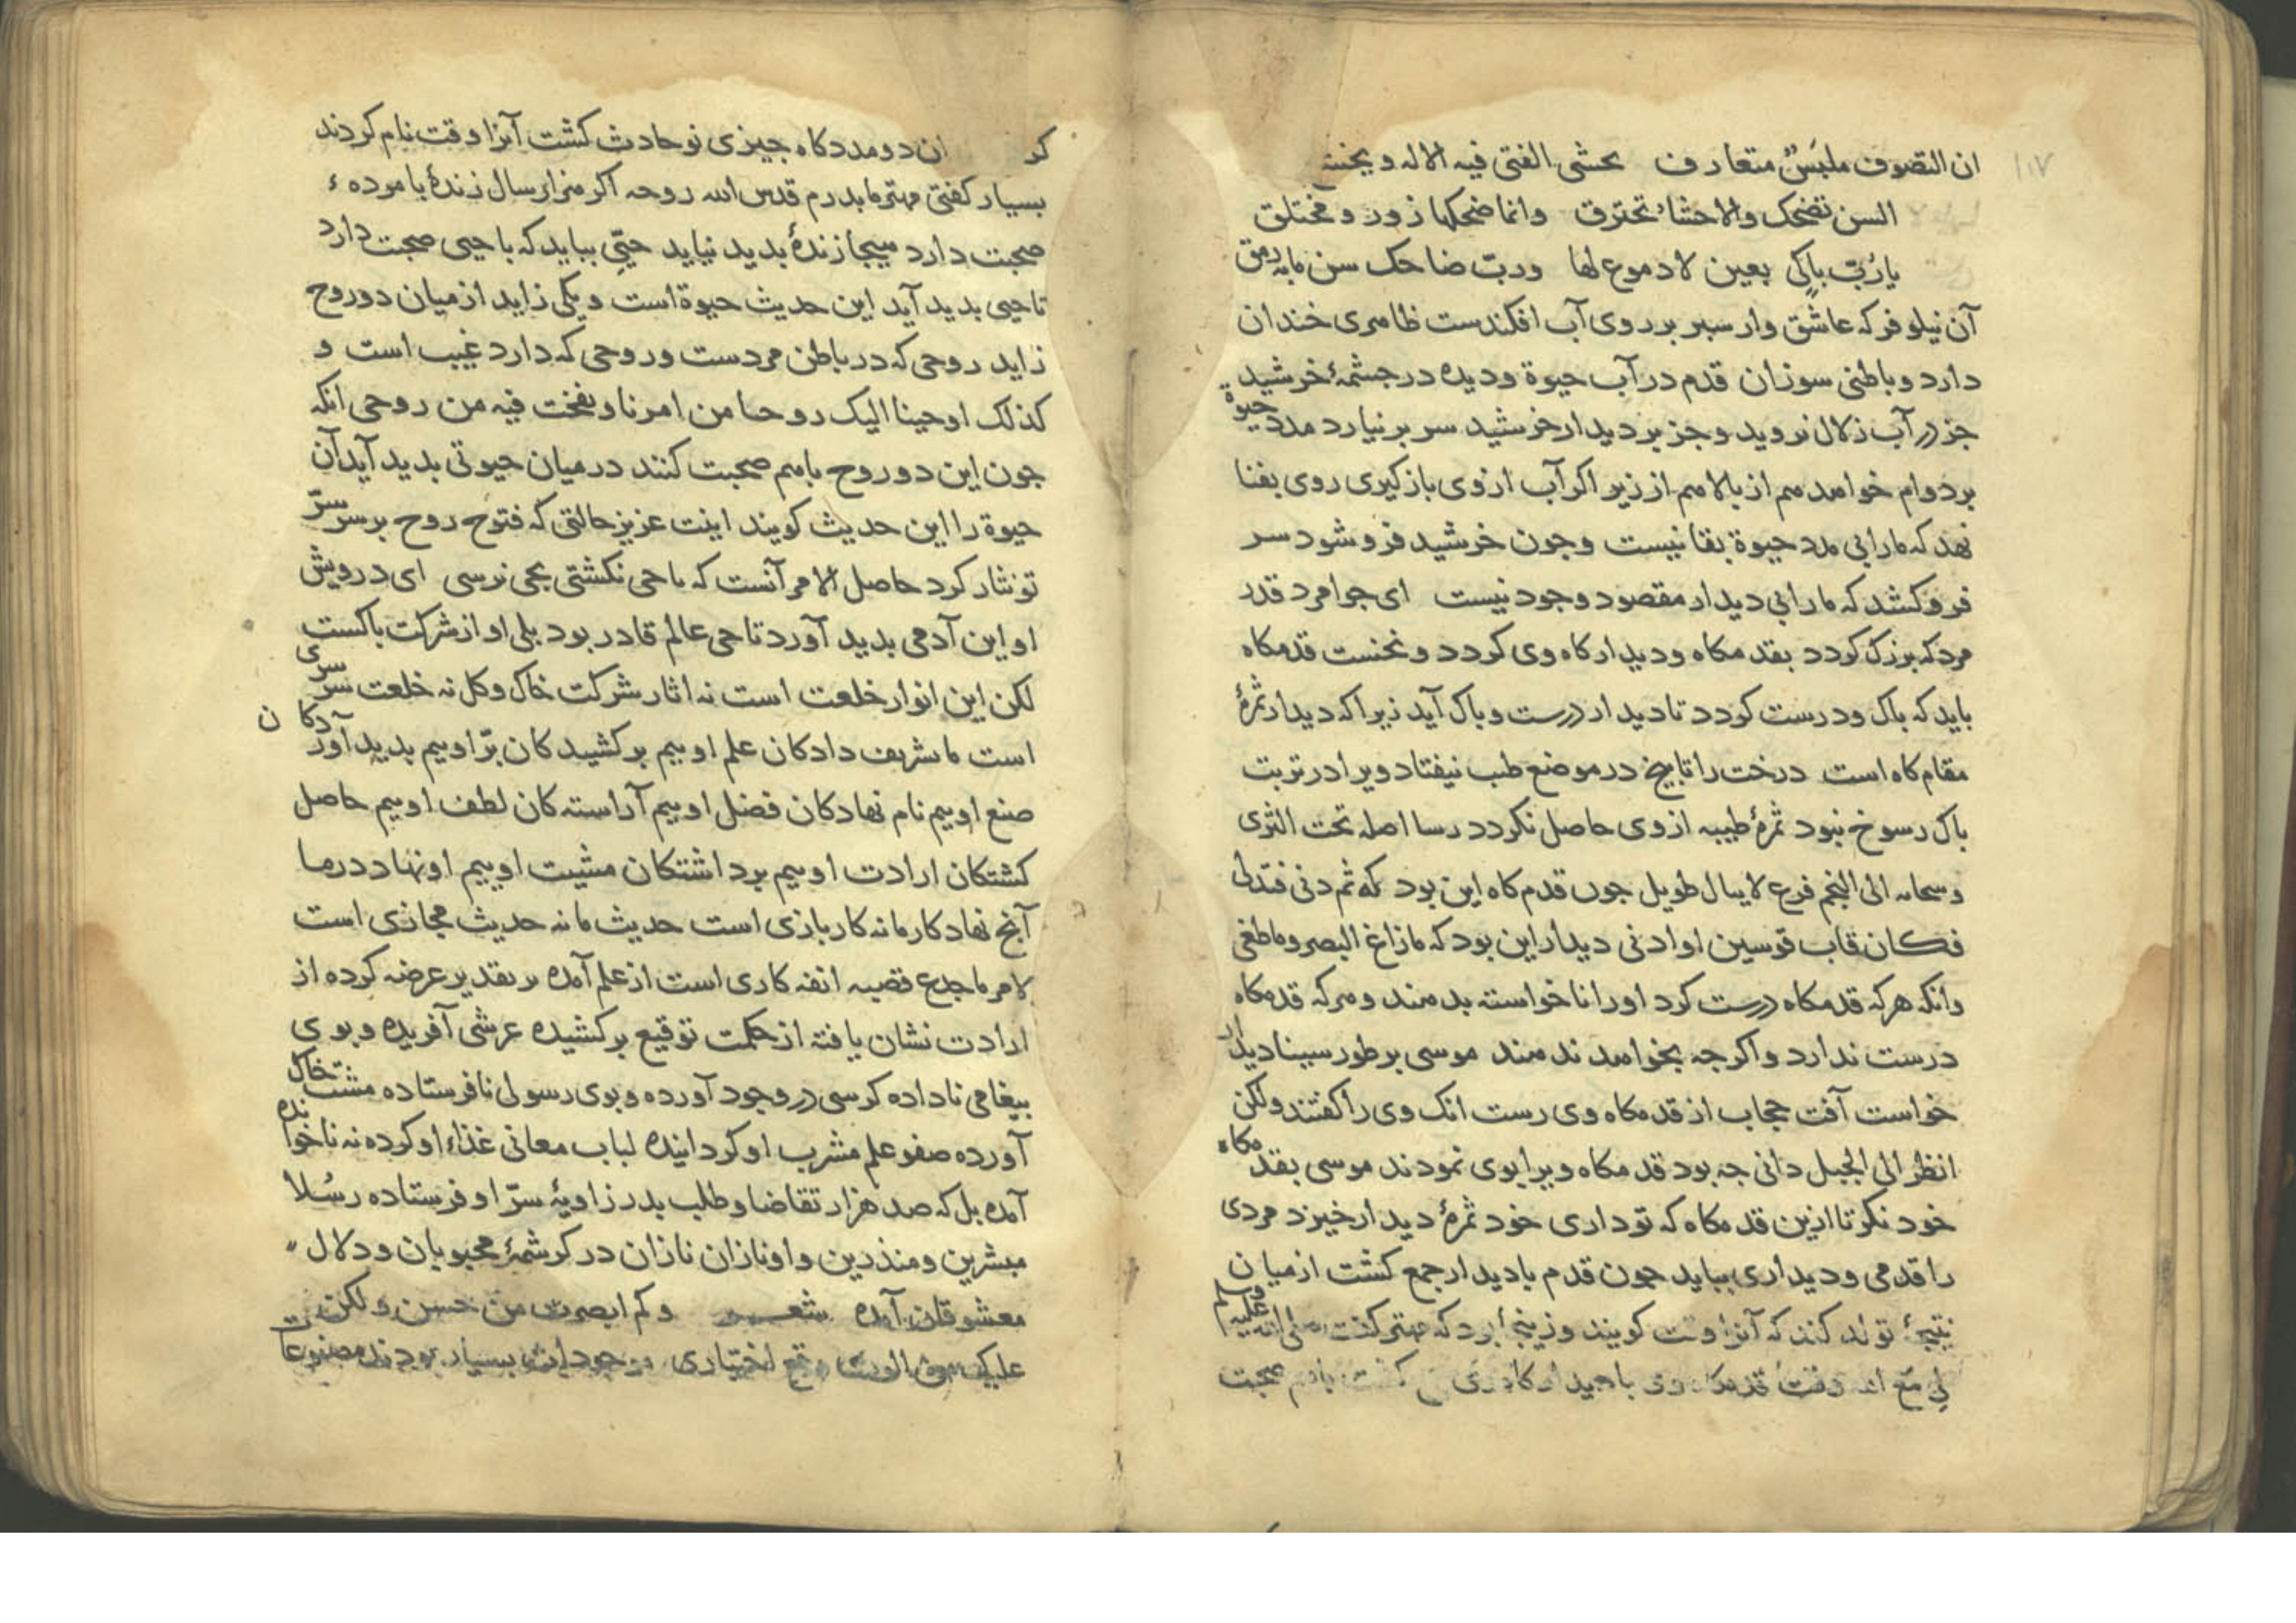 ۱۱۷
ان التصوف ملبس متعارف یخشی الفتی فیه الاله و
السن تضحک والاحشاء تحترق وانما ضحکها زور و مختلق
یا رُبّ باکٍی بعین لا دموع لها وربّ ضاحک سن ما به رمق
آن نیلوفر که عاشق وار سبر بر روی آب افکندست ظاهری خندان
دارد و باطنی سوزان قدم در آب حیوة و دیده در جشمهٔ خرشید
جز در آب زلال نروید و جز بر دیدار خرشید سر بر نیارد مدد حیوة
بر دوام خواهد هم از بالا هم از زیر اکر آب از وی باز کیری روی بفنا
نهد که ما را بی مدد حیوة بقا نیست و جون خرشید فرو شود سر
فرو کشد که ما را بی دیدار مقصود وجود نیست ای جوامرد قدر
مرد که بزرک کردد بقدمکاه و دیدارکاه وی کردد و نخست قدمکاه
باید که باک و درست کردد تا دیدار درست و باک آید زیرا که دیدار ثمرهٔ
مقام کاه است درخت را تا بیخ در موضع طب نیفتاد و یرا در تربت
باک رسوخ نبود ثمرهٔ طیبه از وی حاصل نکردد رسا اصله تحت الثری
و الی النجم فرع لا ینال طویل جون قدم کاه این بود که ثم دنی فتدلی
فکان قاب قوسین او ادنی دیدار این بود که ما زاغ البصر و ما طغی
وانکه هرکه قدمکاه درست کرد او را ناخواسته بدهند و هرکه قدمکاه
درست ندارد و اکرجه بخواهد ندهند موسی بر طور سینا دیدار
خواست آفت حجاب از قدمکاه وی رست انک وی را کفتند ولکن
انظر الی الجبل دانی جه بود قدمکاه ویرا بوی نمودند موسی بقدمکاه
خود نکر تا ازین قدمکاه که تو داری خود ثمرهٔ دیدار خیزد مردی
را قدمی و دیداری بباید جون قدم با دیدار جمع کشت از میان
نتیجهٔ تولد کند که آنرا وقت کویند و زینجا بود که مهتر کفت صلی الله علیه وسلم
لی مع الله وقت قدمکاه وی با دیدارکاه وی کشت باهم صحبت
کر ان دو مددکاه جیزی نو حادث کشت آنرا وقت نام کردند
بسیار کفتی مهتر ما بدرم قدس الله روحه اکر هزار سال زندهٔ با مرده
صحبت دارد هیجا زندهٔ بدید نیاید حیّی بباید که با حیی صحبت دارد
تا حیی بدید آید این حدیث حیوة است و یکی زاید از میان دو روح
زاید روحی که در باطن مردست و روحی که دارد غیب است و
کذلک اوحینا الیک روحا من امرنا و نفخت فیه من روحی انکه
جون این دو روح باهم صحبت کنند در میان حیوتی بدید آید آن
حیوة را این حدیث کویند اینت عزیز حالتی که فتوح روح بر سر سرّ
تو نثار کرد حاصل الامر آنست که تا حی نکشتی بحی نرسی ای درویش
او این آدمی بدید آورد تا حی عالم قادر بود بلی او از شرکت باکست
لکن این انوار خلعت است نه اثار شرکت خاک و کل نه خلعت سرسری
است ما شریف دادکان علم اوییم برکشیدکان برّ اوییم بدید آوردکان
صنع اوییم نام نهادکان فضل اوییم آراسته کان لطف اوییم حاصل
کشتکان ارادت اوییم برداشتکان مشیت اوییم او نهاد در ما
آنج نهاد کار ما نه کار بازی است حدیث ما نه حدیث مجازی است
لامر ما جدع قصیر انفه کاری است از علم آمده بر تقدیر عرضه کرده از
ارادت نشان یافته از حکمت توقیع برکشیده عرشی آفریده و بوی
بیغامی ناداده کرسی در وجود آورده و بوی رسولی نافرستاده مشت خاک
آورده صفو علم مشرب او کردانیده لباب معانی غذاء او کرده نه ناخوانده
آمده بل که صد هزار تقاضا و طلب بدر زاویهٔ سرّ او فرستاده رسُلا
مبشرین و منذرین و او نازان نازان در کرشمهٔ محبوبان و دلال
معشوقان آمده شعر وکم ابصرت من حسن ولکن
علیک من الوری وقع اختیاری موجودات بسیار بودند مصنوعات